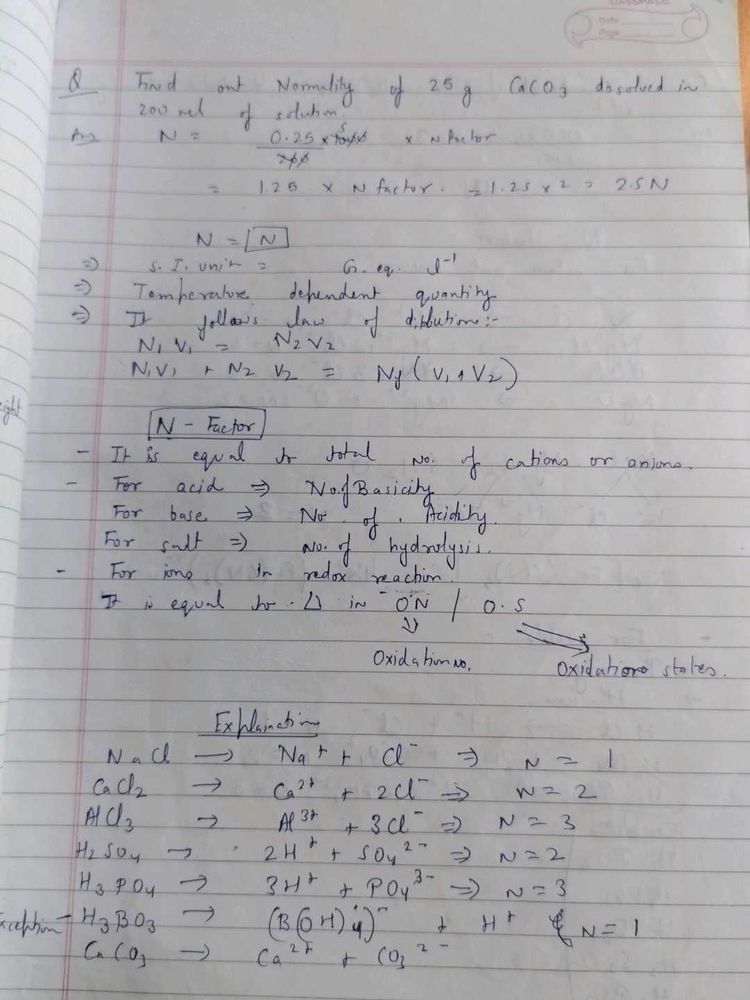 CLASSMATE
Date
Page
Q Find out Normality of 25 g CaCO3 dissolved in
200 ml of solution.
Ans N = 0.25 × 1000 5 × N factor
200
= 1.25 × N factor. = 1.25 × 2 = 2.5 N
N = N
⇒ S.I. unit = G. eq. l⁻¹
⇒ Temperature dependent quantity
⇒ It follows law of dilution:-
N₁V₁ = N₂V₂
N₁V₁ + N₂ V₂ = Nf (V₁+V₂)
eight
N - Factor
- It is equal to total No. of cations or anions.
- For acid ⇒ No. of Basicity
For base ⇒ No. of Acidity.
For salt ⇒ No. of hydrolysis.
- For ions in redox reaction.
It is equal to Δ in ON / O.S
⇓
Oxidation no. Oxidation states.
Explaination
NaCl → Na⁺ + Cl⁻ ⇒ N = 1
CaCl₂ → Ca²⁺ + 2Cl⁻ ⇒ N = 2
AlCl₃ → Al³⁺ + 3Cl⁻ ⇒ N = 3
H₂SO₄ → 2H⁺ + SO₄²⁻ ⇒ N = 2
H₃PO₄ → 3H⁺ + PO₄³⁻ ⇒ N = 3
Exception - H₃BO₃ → (B(OH)4)⁻ + H⁺ N = 1
CaCO₃ → Ca²⁺ + CO₃²⁻